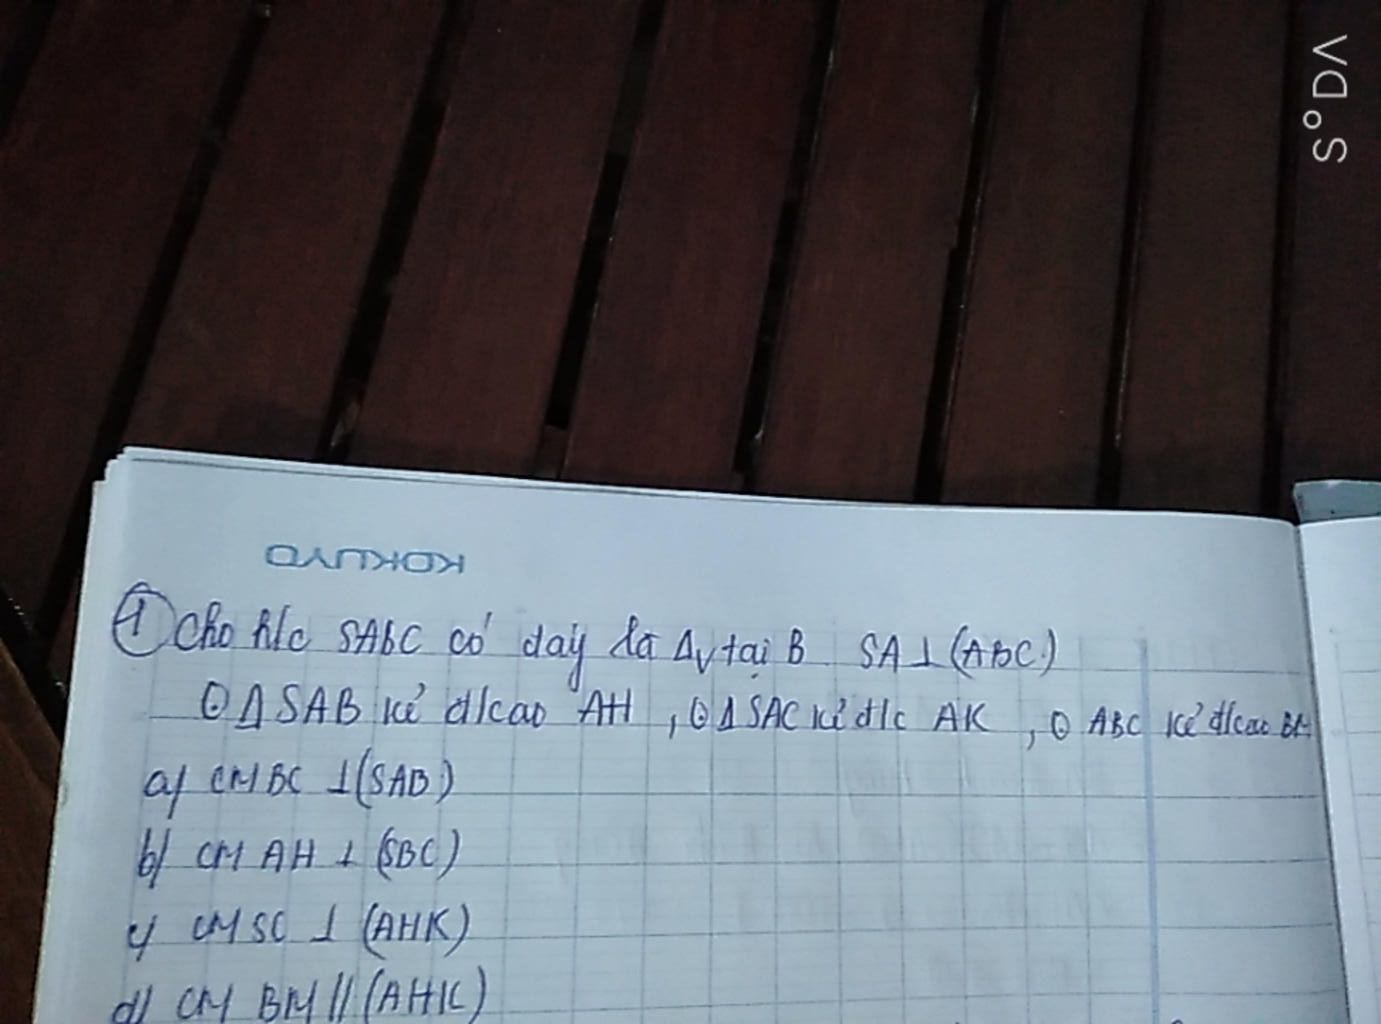 VD°S
KOKUYO
① Cho h/c SABC có đáy là Δv tại B SA⊥(ABC)
⊙ΔSAB kẻ đ/cao AH, ⊙ΔSAC kẻ đ/c AK, ⊙ ABC kẻ đ/cao BM
a/ CM BC ⊥(SAB)
b/ CM AH ⊥ (SBC)
c/ CM SC ⊥ (AHK)
d/ CM BM // (AHK)